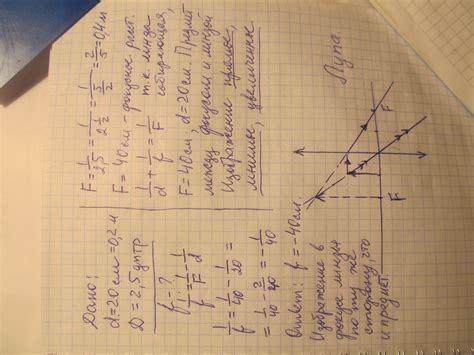 Дано:
d = 20 см = 0,2 м
D = 2,5 дптр
f - ?
1/f = 1/F - 1/d
1/f = 1/40 - 1/20 =
= 1/40 - 2/40 = - 1/40
Ответ: f = -40 см.
Изображение в
фокусе линзы
по ту же
сторону, что
и предмет.
F = 1/2,5 = 1/2 1/2 = 1/5/2 = 2/5 = 0,4 м
F = 40 см - фокусное расст.
1/d + 1/f = 1/F т.к. линза
собирающая,
F = 40 см, d = 20 см. Предмет
между фокусом и линзой
Изображение прямое,
мнимое, увеличенное
Лупа
F
F